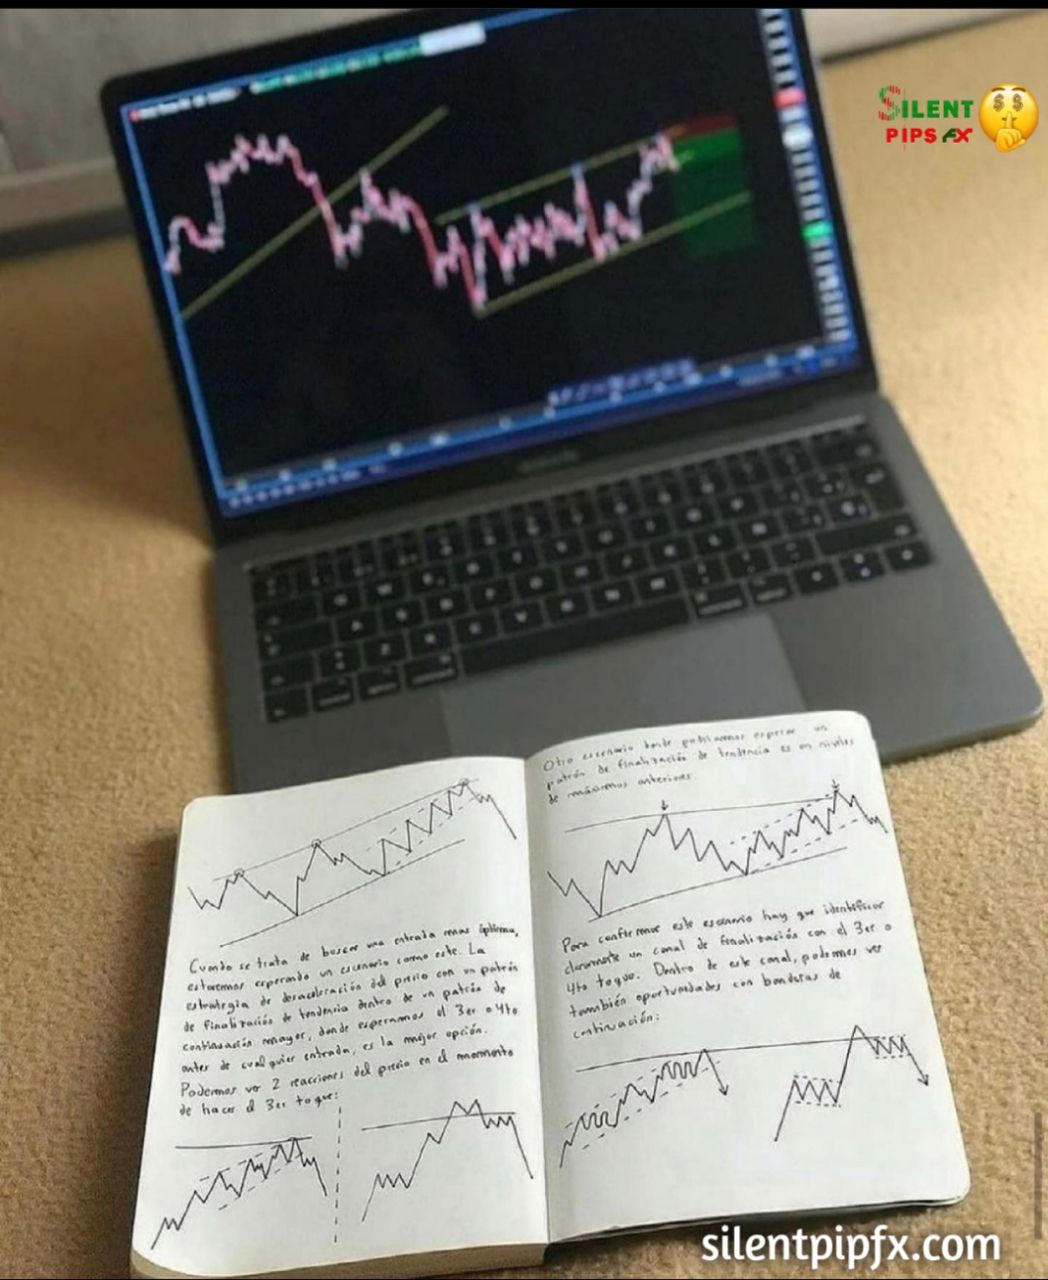 SILENT
PIPS FX
Cuando se trata de buscar una entrada mas óptima,
estaremos esperando un escenario como este. La
estrategia de desaceleración del precio con un patrón
de finalización de tendencia dentro de un patrón de
continuación mayor, donde esperamos el 3er o 4to
antes de cualquier entrada, es la mejor opción.
Podemos ver 2 reacciones del precio en el momento
de hacer el 3er toque:
Otro escenario donde podríamos esperar un
patrón de finalización de tendencia es en niveles
de máximos anteriores
Para confirmar este escenario hay que identificar
claramente un canal de finalización con el 3er o
4to toque. Dentro de este canal, podemos ver
también oportunidades con banderas de
continuación:
silentpipfx.com